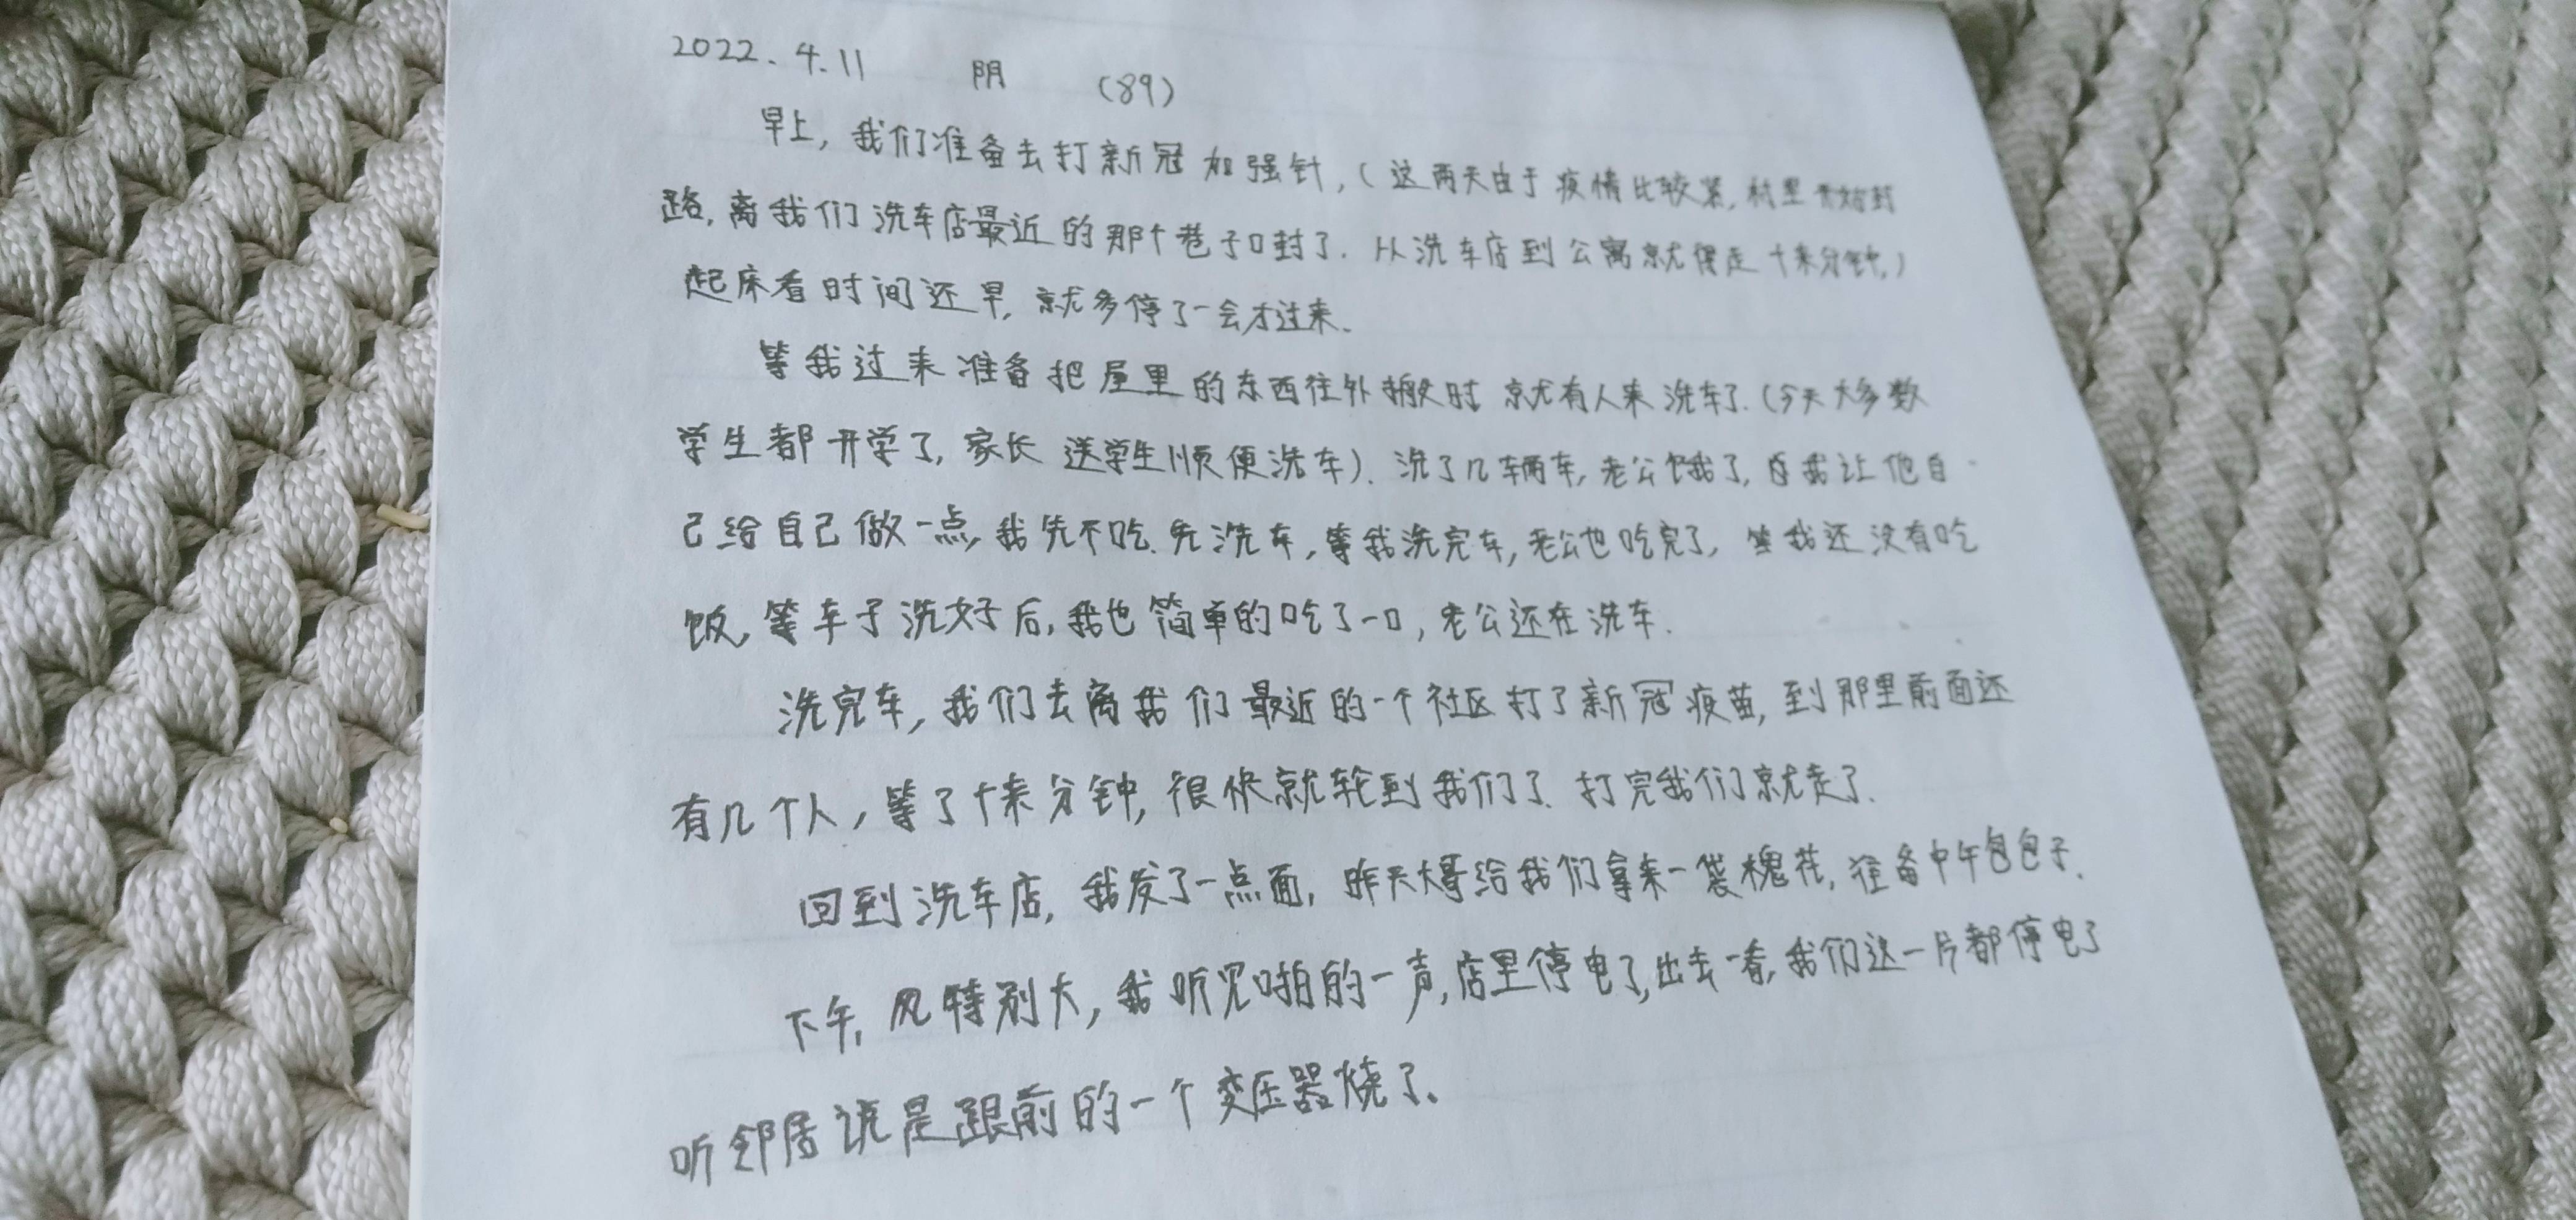 2022.4.11 阴 (89)
早上,我们准备去打新冠加强针,(这两天由于疫情比较紧,村里开始封
路,离我们洗车店最近的那个巷子口封了.从洗车店到公寓就得走十来分钟,)
起床看时间还早,就多停了一会才过来.
等我过来准备把屋里的东西往外搬时就有人来洗车了.(今天大多数
学生都开学了,家长送学生顺便洗车).洗了几辆车,老公饿了,我让他自
己给自己做一点,我先不吃.先洗车,等我洗完车,老公也吃完了,我还没有吃
饭,等车子洗好后,我也简单的吃了一口,老公还在洗车.
洗完车,我们去离我们最近的一个社区打了新冠疫苗,到那里前面还
有几个人,等了十来分钟,很快就轮到我们了.打完我们就走了.
回到洗车店,我发了一点面,昨天大哥给我们拿来一袋槐花,准备中午包包子.
下午,风特别大,我听见啪的一声,店里停电了,出去一看,我们这一片都停电了
听邻居说是跟前的一个变压器烧了.